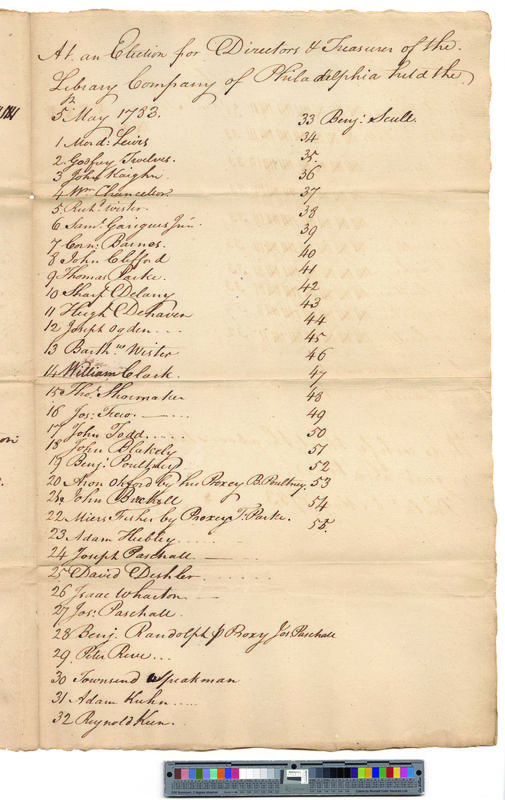 At an Election for Directors & Treasurer of the
Library Company of Philadelphia held the
5 May 1783.
1 Mord: Lewis
2 Godfrey Twelves.
3 John Kaighn
4 Wm Chancellor.
5 Richd Wister.
6 Saml. Garigues Junr.
7 Corn: Barnes.
8 John Clifford
9 Thomas Parke.
10 Sharp Delany
11 Hugh Dehaven
12 Joseph Ogden...
13 Barthw Wister
14 William Clark.
15 Thos. Shoemaker
16 Jos:
17 John Todd.....
18 John Blakely
19 Benj: Poultney
20 by his Proxey B. Poultney.
21 John
22 Miers Fisher by Proxey T. Parke.
23 Adam Hubley......
24 Joseph Paschall
25 David Deshler.......
26 Isaac Wharton
27 Jos: Paschall.
28 Benj. Randolph p Proxy Jos Paschall
29 Peter
30 Townsend Speakman
31 Adam Kuhn.....
32 Reynold Keen..
33 Benj: Scull
34
35.
36
37
38
39
40
41
42
43
44
45
46
47
48
49
50
51
52
53
54
55.